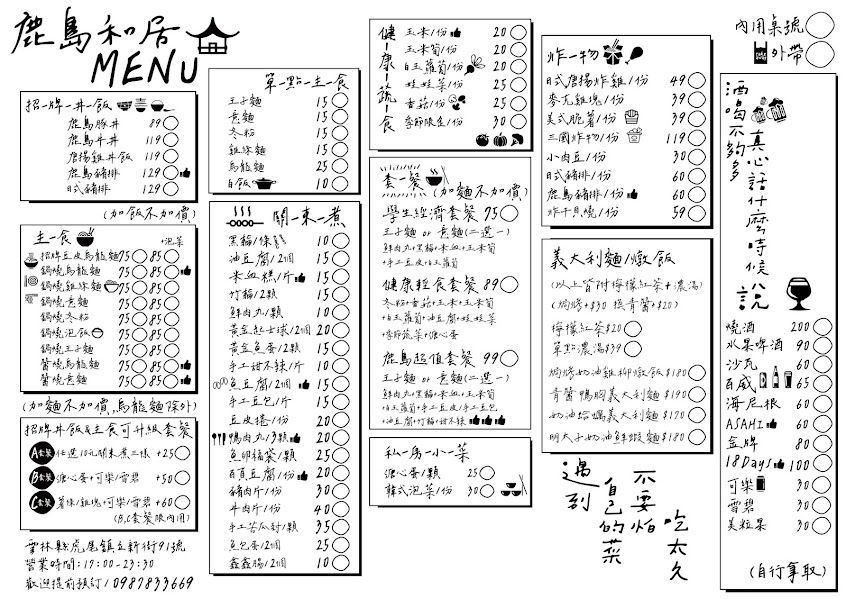 鹿島和居
MENU
招牌丼飯
鹿島豚丼 89
鹿島牛丼 119
唐揚雞丼飯 119
鹿島豬排 129
日式豬排 129
(加飯不加價)
主一食
+泡菜
招牌豆皮烏龍麵 75 85
鍋燒烏龍麵 75 85
鍋燒雞絲麵 75 85
鍋燒意麵 75 85
鍋燒冬粉 75 85
鍋燒泡飯 75 85
鍋燒王子麵 75 85
醬燒烏龍麵 75 85
醬燒意麵 75 85
(加麵不加價,烏龍麵除外)
招牌丼飯&主食可升級套餐
A套餐 任選10元關東煮三樣 +25
B套餐 溏心蛋+可樂/雪碧 +50
C套餐 薯條/雞塊+可樂/雪碧 +60
(B,C套餐限內用)
雲林縣虎尾鎮立新街91號
營業時間:17:00-23:30
歡迎提前預訂/0987833669
單一點一主一食
王子麵 15
意麵 15
冬粉 15
雞絲麵 15
烏龍麵 25
白飯 10
關一東一煮
黑輪/條 10
油豆腐/2個 10
米血糕/片 10
竹輪/2顆 10
鮮肉丸/顆 10
黃金起士球/2個 20
黃金魚蛋/2顆 15
手工甜不辣/片 10
魚豆腐/2個 15
手工豆包/片 15
豆皮捲/份 20
鴨肉丸/3顆 20
魚卵福袋/2顆 25
百頁豆腐/份 20
豬肉片/份 30
牛肉片/份 40
手工苦瓜封/顆 35
魚包蛋/2個 25
鑫鑫腸/2個 10
健一康一蔬一食
玉米/份 20
玉米筍/份 20
白玉蘿蔔/份 20
娃娃菜/份 25
香菇/份 25
季節限定/份 30
套一餐
(加麵不加價)
學生經濟套餐 75
王子麵 or 意麵(二選一)
鮮肉丸+黑輪+米血+玉米筍
+手工豆皮+白玉蘿蔔
健康輕食套餐 89
冬粉+香菇+玉米+玉米筍
+白玉蘿蔔+油豆腐+娃娃菜
+季節蔬菜+溏心蛋
鹿島超值套餐 99
王子麵 or 意麵(二選一)
鮮肉丸+黑輪+米血+玉米筍
+白玉蘿蔔+手工豆皮+手工豆包
+油豆腐+竹輪+甜不辣
私一房一小一菜
溏心蛋/顆 25
韓式泡菜/份 30
炸一物
日式唐揚炸雞/份 49
麥克雞塊/份 39
美式脆薯/份 39
三國炸物/份 119
小肉豆/份 30
日式豬排/份 60
鹿島豬排/份 60
炸干貝燒/份 59
義大利麵/燉飯
(以上皆附檸檬紅茶+濃湯)
(焗烤+$30 換青醬+$20)
檸檬紅茶$20
單點濃湯$39
焗烤奶油雞柳燉飯$180
青醬鴨胸義大利麵$190
奶油蛤蠣義大利麵$170
明太子奶油鮮蝦麵$180
遇到
自己的菜
不要怕
吃太久
內用桌號
外帶
酒喝不夠多
真心話什麼時候說
燒酒 200
水果啤酒 90
沙瓦 60
百威 65
海尼根 60
ASAHI 60
金牌 80
18Days 100
可樂 30
雪碧 30
美粒果 30
(自行拿取)